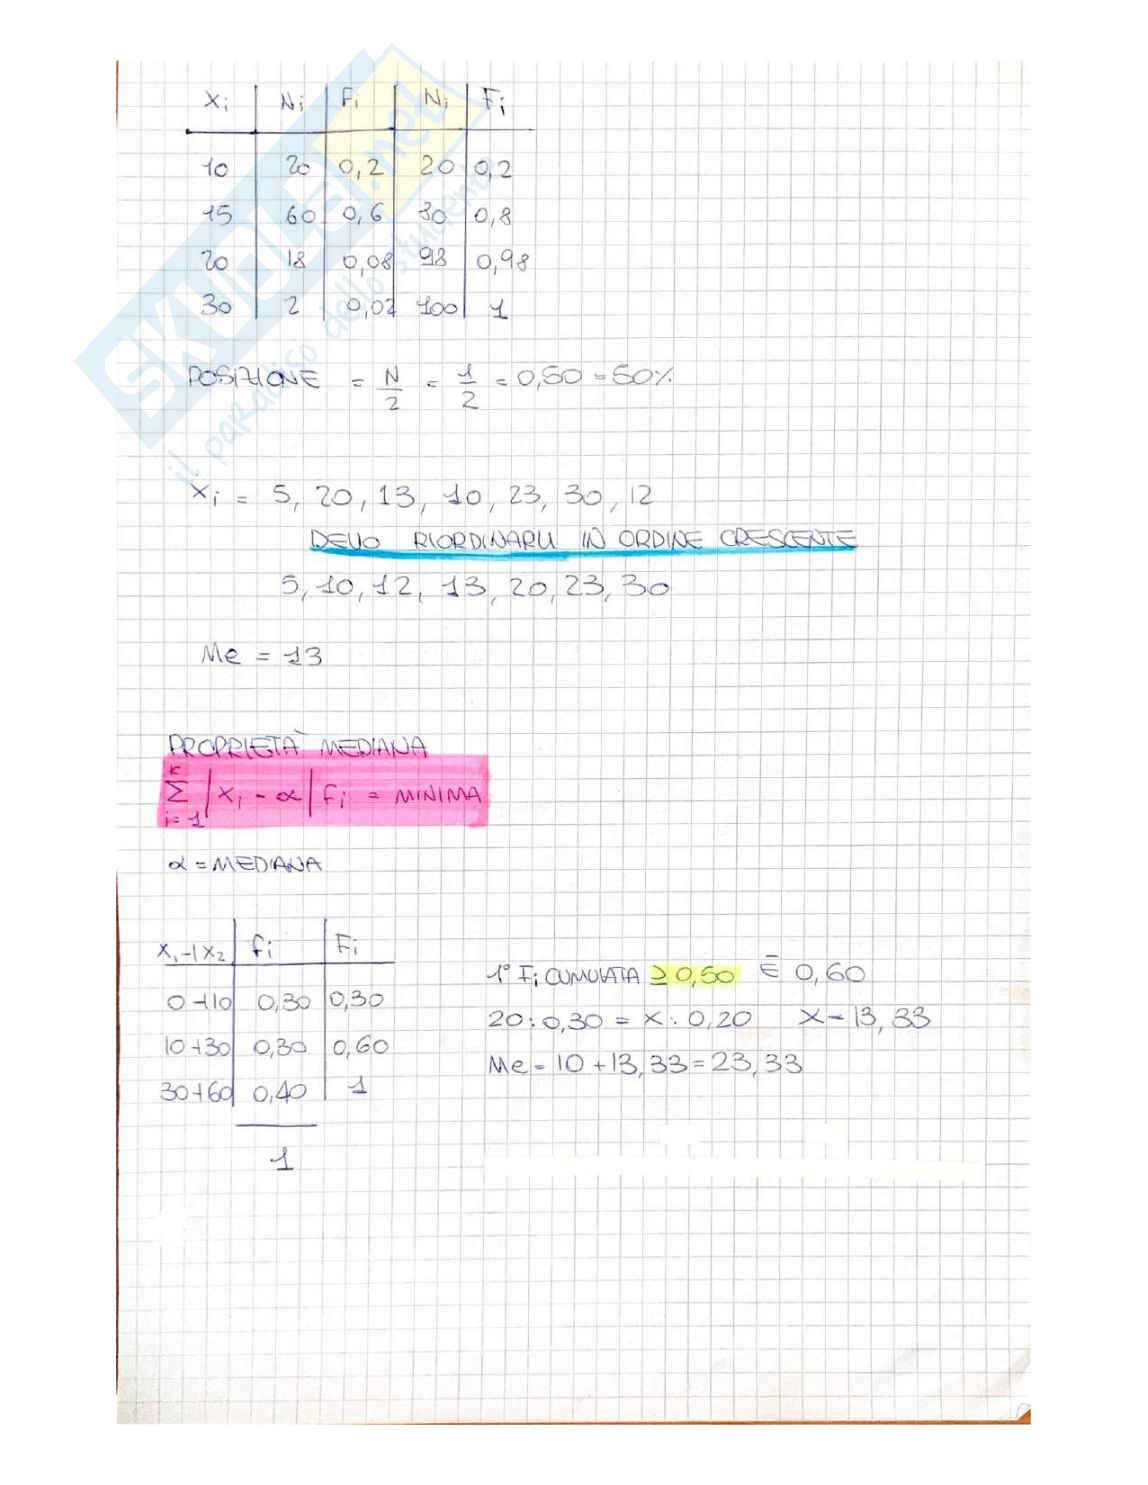 xi | Ni | fi | Ni | Fi
10 | 20 | 0,2 | 20 | 0,2
15 | 60 | 0,6 | 80 | 0,8
20 | 18 | 0,08 | 98 | 0,98
30 | 2 | 0,02 | 100 | 1
POSIZIONE = N/2 = 1/2 = 0,50 = 50%
xi = 5, 20, 13, 10, 23, 30, 12
DEVO RIORDINARLI IN ORDINE CRESCENTE
5, 10, 12, 13, 20, 23, 30
Me = 13
PROPRIETÀ MEDIANA
K
Σ |xi - α| fi = MINIMA
i=1
α = MEDIANA
x1 -| x2 | fi | Fi
0 -| 10 | 0,30 | 0,30
10 -| 30 | 0,30 | 0,60
30 -| 60 | 0,40 | 1
1
1° Fi CUMULATA ≥ 0,50 È 0,60
20 : 0,30 = x : 0,20 x = 13,33
Me = 10 + 13,33 = 23,33
SKUOLA.net
il paradiso dello studente